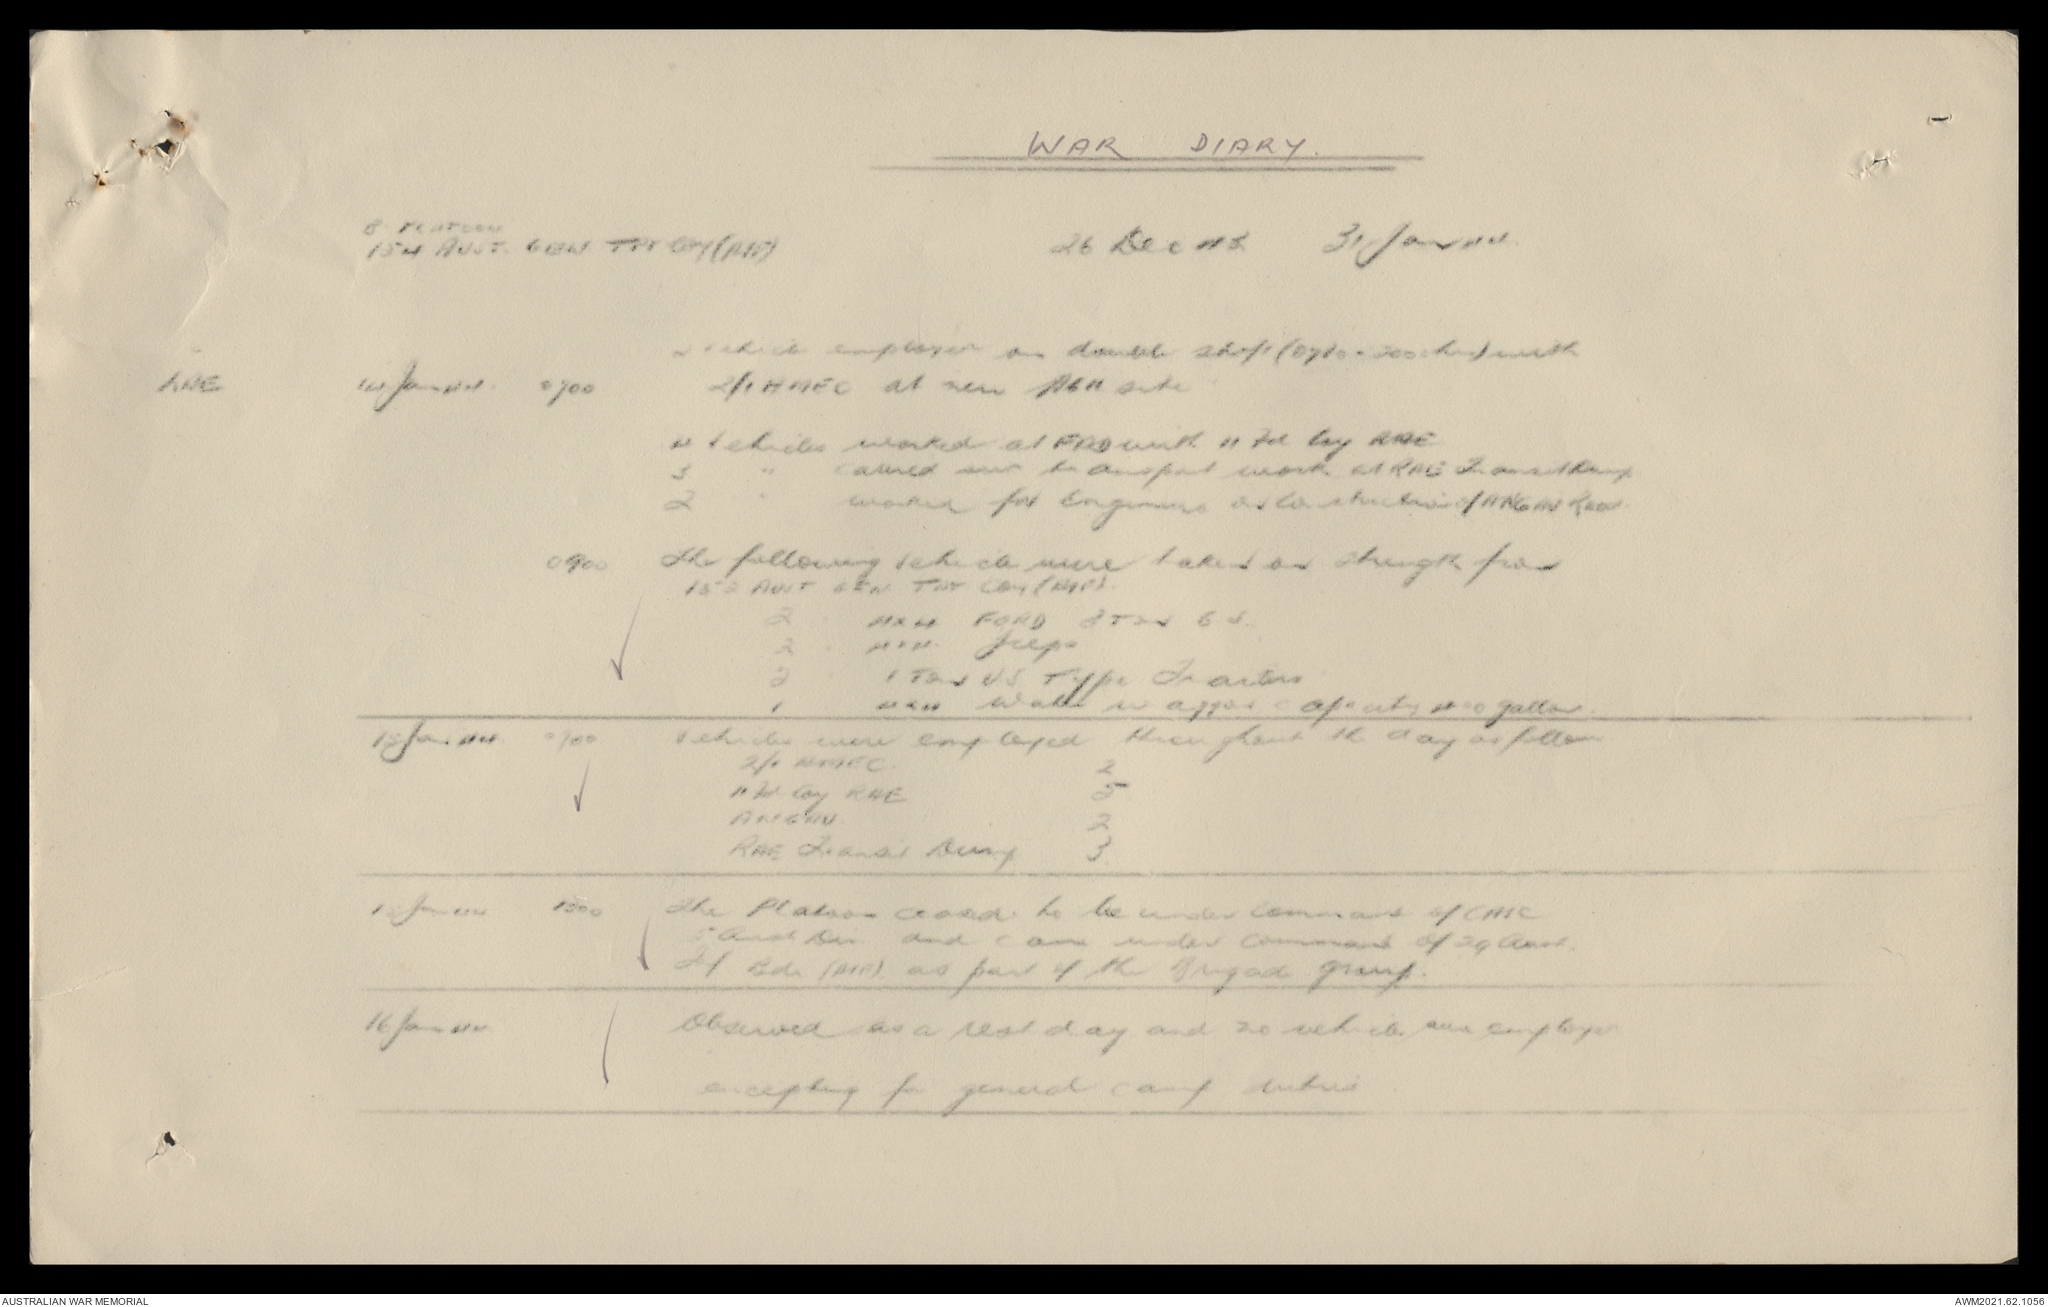 WAR DIARY.
B PLATOON
154 AUST. GEN TPT COY (AIF)
26 Dec 43 31 Jan 44.
vehicle employed on double shift (0700 - 2000 hrs) with
LAE 14 Jan 44. 0700 2/1 HMEC at new AGH site
4 Vehicles worked at FRD with 11 Fd Coy RAE
3 " carried out transport work at RAE Transit Dump
2 " worked for Engineers on Construction of ANGAU Road.
0900 The following vehicle were taken on strength from
152 AUST GEN TPT COY (AIF).
2 4x4 FORD 3 Ton G.S.
2 4x4. Jeeps
2 1 Ton US Type Trailers
1 4x4 Water waggon capacity 400 gallon.
15 Jan 44. 0700 Vehicles were employed throughout the day as follow
2/1 HMEC. 2
11 Fd Coy RAE 5
ANGAU. 2
RAE Transit Dump 3.
15 Jan 44 1500 The Platoon ceased to be under command of CAASC
5 Aust Div and came under command of 29 Aust.
Inf Bde (AIF) as part of the Brigade group.
16 Jan 44. Observed as a rest day and no vehicle were employed
excepting for general camp duties
AUSTRALIAN WAR MEMORIAL
AWM2021.62.1056